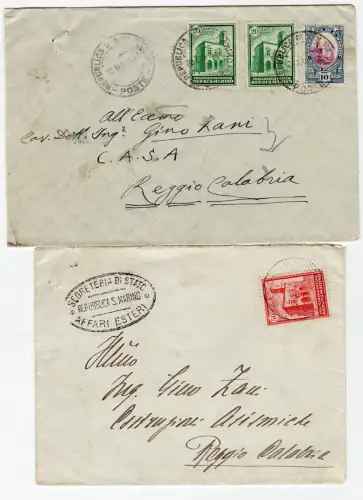 REPUBBLICA
POSTE
20
20
10
all'Ecc.mo
Cav. Dott. Ing.re Gino Zani
C.A.S.A
Reggio Calabria
SEGRETERIA DI STATO
REPUBBLICA S. MARINO
AFFARI ESTERI
Ill/mo
Ing. Gino Zani
Costruzioni Asismiche
Reggio Calabria